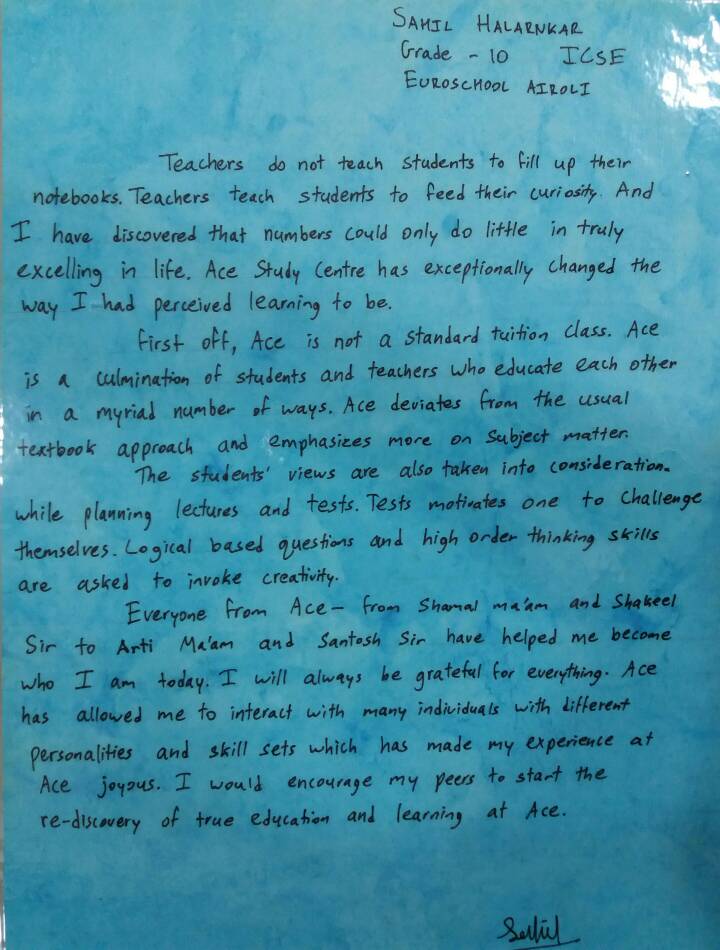 SAHIL HALARNKAR
Grade - 10 ICSE
EUROSCHOOL AIROLI
Teachers do not teach students to fill up their
notebooks. Teachers teach students to feed their curiosity. And
I have discovered that numbers could only do little in truly
excelling in life. Ace Study Centre has exceptionally changed the
way I had perceived learning to be.
First off, Ace is not a standard tuition class. Ace
is a culmination of students and teachers who educate each other
in a myriad number of ways. Ace deviates from the usual
textbook approach and emphasizes more on subject matter.
The students' views are also taken into consideration.
while planning lectures and tests. Tests motivates one to challenge
themselves. Logical based questions and high order thinking skills
are asked to invoke creativity.
Everyone from Ace - from Shamal ma'am and Shakeel
Sir to Arti Ma'am and Santosh Sir have helped me become
who I am today. I will always be grateful for everything. Ace
has allowed me to interact with many individuals with different
personalities and skill sets which has made my experience at
Ace joyous. I would encourage my peers to start the
re-discovery of true education and learning at Ace.
Sahil